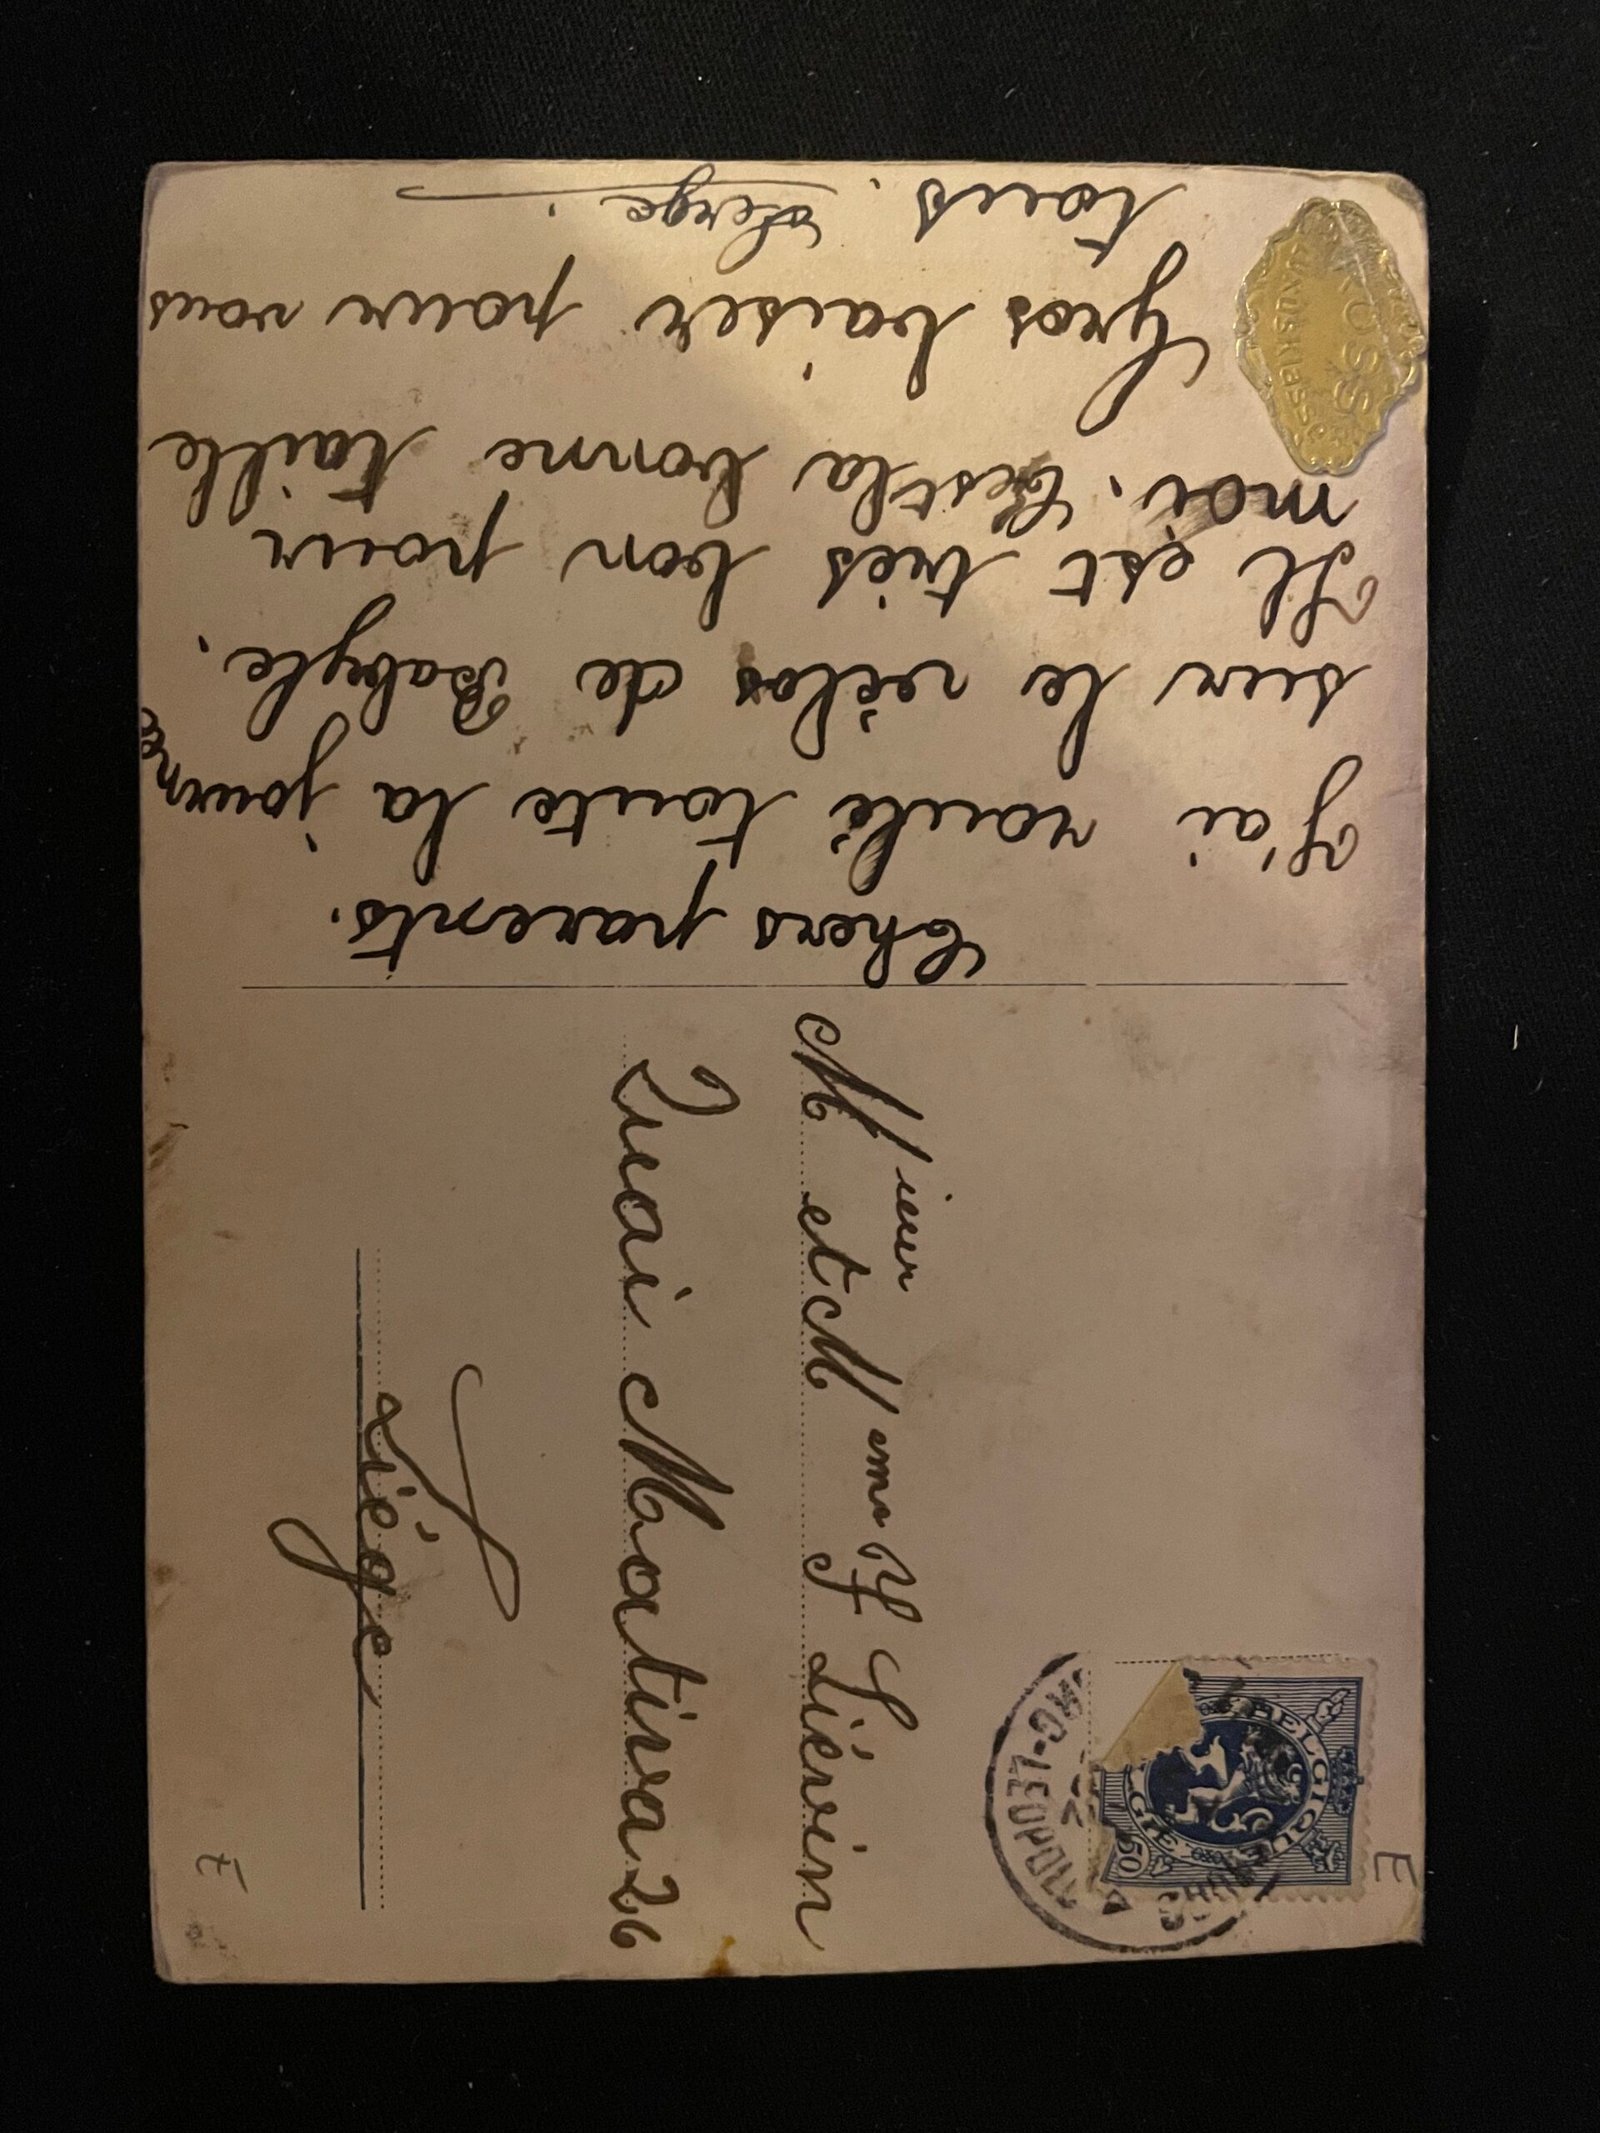 Chers parents.
J'ai roulé toute la journée
sur le vélos de Babyle.
Il est très bon pour
moi. C'est la bonne taille
Gros baiser pour vous
tous. Serge.
Mieur et Mme F Liévin
Quai Mativa 26
Liége
BELGIQUE
BELGIË
50
LEOPOLD
E
E